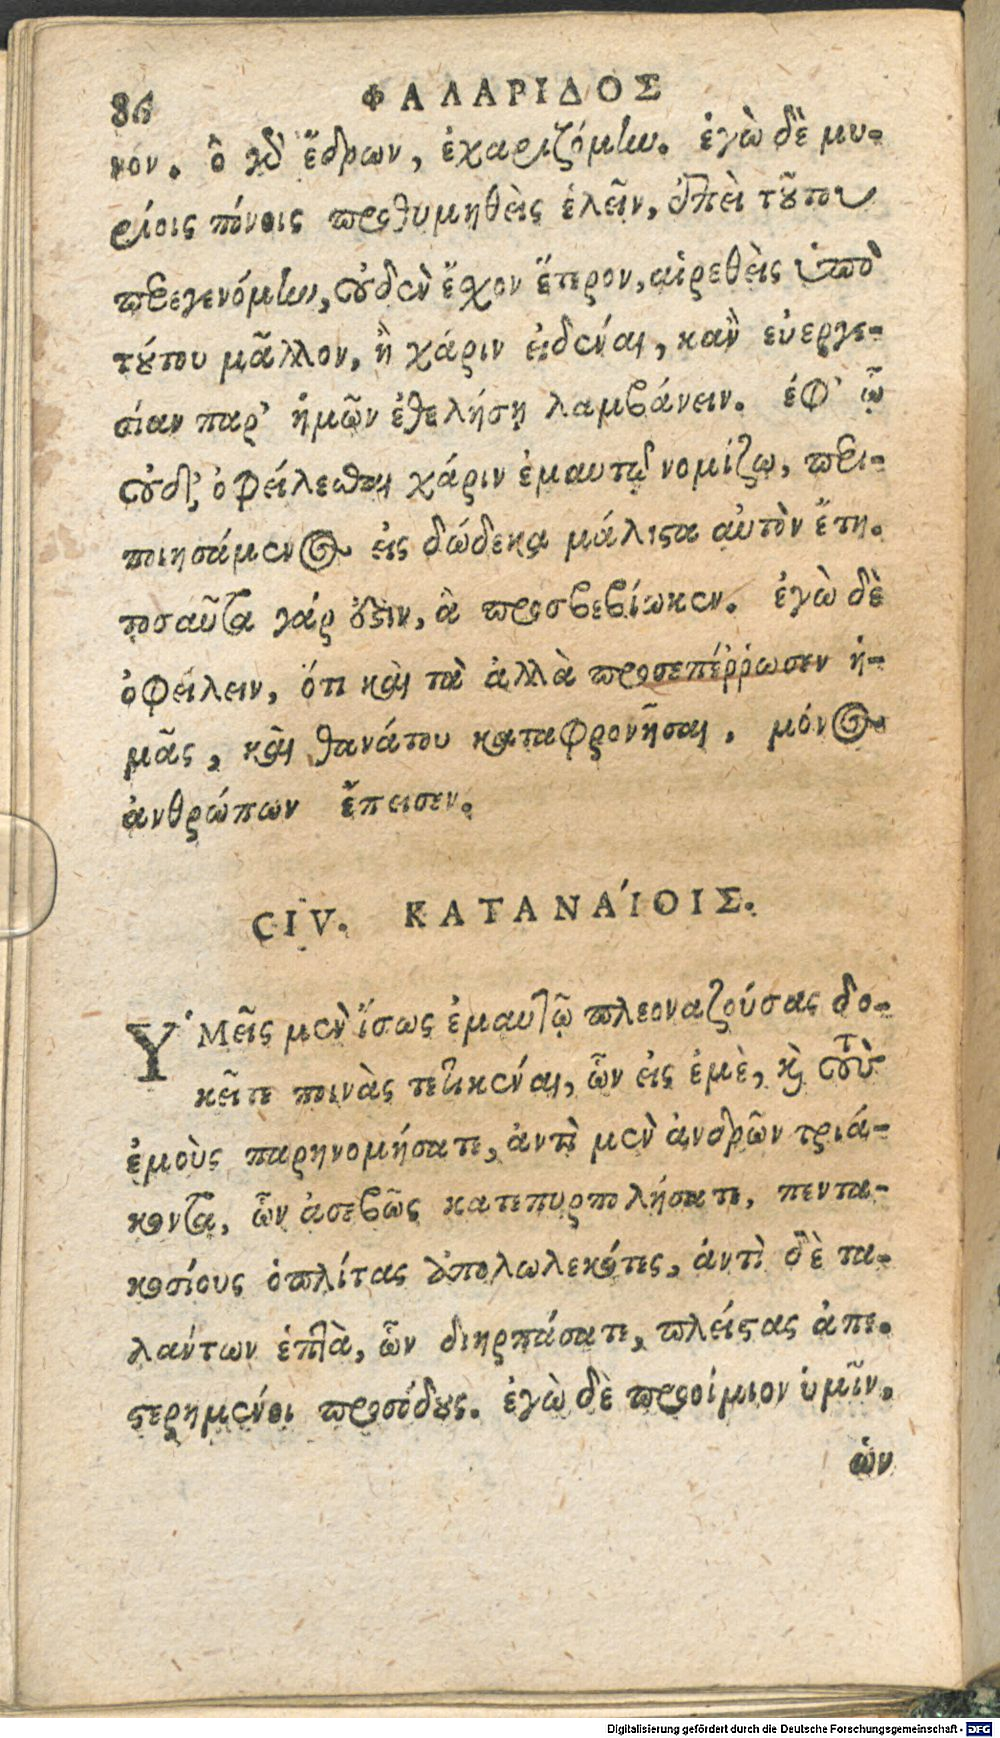 86 ΦΑΛΑΡΙΔΟΣ
νον. ὃ γὰρ ἔδρων, ἐχαριζόμην. ἐγὼ δὲ μυ-
ρίοις πόνοις προθυμηθεὶς ἑλεῖν, ἐπεὶ τούτου
περιεγενόμην, οὐδὲν ἔσχον ἕτερον, αἱρεθεὶς ὑπὸ
τούτου μᾶλλον, ἢ χάριν εἰδέναι, κἂν εὐεργε-
σίαν παρ' ἡμῶν ἐθελήσῃ λαμβάνειν. ἐφ' ᾧ
οὐδ' ὀφείλεσθαι χάριν ἐμαυτῷ νομίζω, περι-
ποιησάμενος εἰς δώδεκα μάλιστα αὐτὸν ἔτη.
τοσαῦτα γάρ ἐστιν, ἃ προσβεβίωκεν. ἐγὼ δὲ
ὀφείλειν, ὅτι καὶ τὰ ἀλλὰ προσεπέῤῥωσεν ἡ-
μᾶς, καὶ θανάτου καταφρονῆσαι, μόνος
ἀνθρώπων ἔπεισεν.
CIV. ΚΑΤΑΝΑΊΟΙΣ.
ὙΜεῖς μὲν ἴσως ἐμαυτῷ πλεοναζούσας δο-
κεῖτε ποινὰς τετικέναι, ὧν εἰς ἐμὲ, καὶ τοὺς
ἐμοὺς παρηνομήσατε, ἀντὶ μὲν ἀνδρῶν τριά-
κοντα, ὧν ἀσεβῶς κατεπυρπολήσατε, πεντα-
κοσίους ὁπλίτας ἀπολωλεκότες, ἀντὶ δὲ τα-
λάντων ἑπτὰ, ὧν διηρπάσατε, πλείστας ἀπε-
στερημένοι προσόδους. ἐγὼ δὲ προοίμιον ὑμῖν,
ὧν
Digitalisierung gefördert durch die Deutsche Forschungsgemeinschaft - DFG